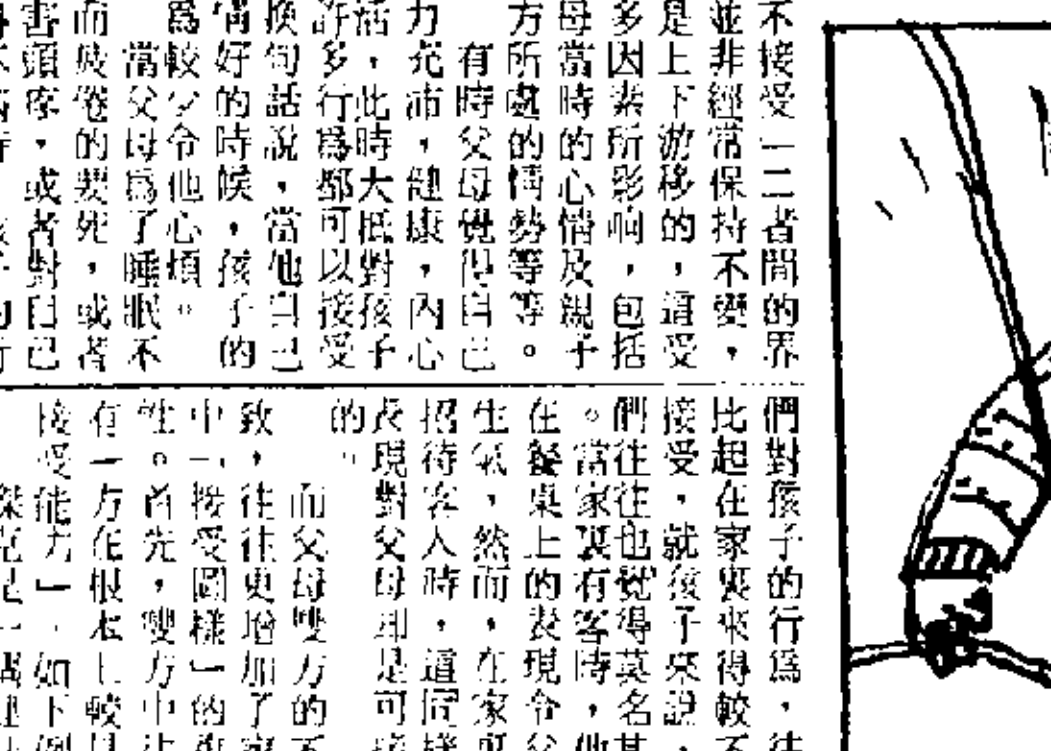 不接受」二者間的界
並非經常保持不變，
是上下游移的，這受
多因素所影响，包括
母當時的心情及親子
方所處的情勢等等。
有時父母覺得自己
力充沛，健康，內心
活，此時大抵對孩子
許多行爲都可以接受
換句話說，當他自己
情好的時候，孩子的
爲較少令他心煩。
當父母爲了睡眠不
而疲倦的要死，或者
書頭疼，或者對自己
們對孩子的行爲，往
比起在家裏來得較不
接受，就孩子來說，
們往往也覺得莫名其
。當家裏有客時，他
在餐桌上的表現令父
生氣，然而，在家裏
招待客人時，這同樣
表現對父母却是可接
的。
而父母雙方的不
致，往往更增加了家
中「接受圖樣」的
性。首先，雙方中往
有一方在根本上較具
接受能力」，如下例